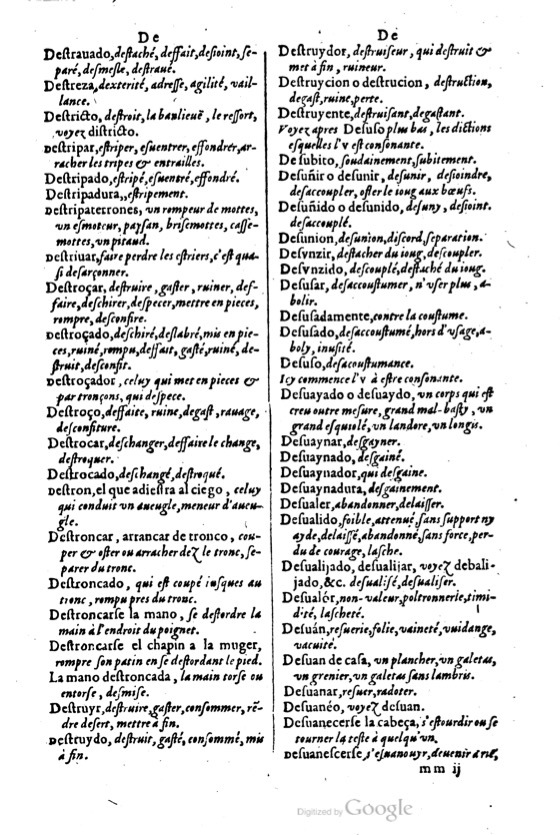 De
Deſtrauado, deſtaché, deffait, deſioint, ſe-
paré, deſmeſlé, deſtraué.
Deſtreza, dexterité, adreſſe, agilité, vail-
lance.
Deſtricto, deſtroit, la banlieuë, le reſſort,
voyez diſtricto.
Deſtripar, eſtriper, eſuentrer, effondrer, ar-
racher les tripes & entrailles.
Deſtripado, eſtripé, eſuentré, effondré.
Deſtripadura,, eſtripement.
Deſtripaterrones, vn rompeur de mottes,
vn eſmoteur, payſan, briſemottes, caſſe-
mottes, vn pitaud.
Deſtriuar, faire perdre les eſtriers, c'eſt qua-
ſi deſarçonner.
Deſtroçar, deſtruire, gaſter, ruiner, deſ-
faire, deſchirer, deſpecer, mettre en pieces,
rompre, deſconfire.
Deſtroçado, deſchiré, deſlabré, mis en pie-
ces, ruiné, rompu, deffait, gaſté, ruiné, de-
ſtruit, deſconfit.
Deſtroçador, celuy qui met en pieces &
par tronçons, qui deſpece.
Deſtroço, deffaite, ruine, degaſt, rauage,
deſconfiture.
Deſtrocar, deſchanger, deffaire le change,
deſtroquer.
Deſtrocado, deſchangé, deſtroqué.
Deſtron, el que adieſtra al ciego, celuy
qui conduit vn aueugle, meneur d'aueu-
gle.
Deſtroncar, arrancar de tronco, cou-
per & oſter ou arracher dez le tronc, ſe-
parer du tronc.
Deſtroncado, qui eſt coupé iuſques au
tronc, rompu pres du tronc.
Deſtroncarſe la mano, ſe deſtordre la
main à l'endroit du poignet.
Deſtroncarſe el chapin a la muger,
rompre ſon patin en ſe deſtordant le pied.
La mano deſtroncada, la main torſe ou
entorſe, deſmiſe.
Deſtruyr, deſtruire, gaſter, conſommer, rē-
dre deſert, mettre à fin.
Deſtruydo, deſtruit, gaſté, conſommé, mis
à fin.
De
Deſtruydor, deſtruiſeur, qui deſtruit &
met à fin, ruineur.
Deſtruycion o deſtrucion, deſtruction,
degaſt, ruine, perte.
Deſtruyente, deſtruiſant, degaſtant.
Voyez apres Deſuſo plus bas, les dictions
eſquelles l'v eſt conſonante.
De ſubito, ſoudainement, ſubitement.
Deſuñir o deſunir, deſunir, deſioindre,
deſaccoupler, oſter le ioug aux bœufs.
Deſuñido o deſunido, deſuny, deſioint.
deſaccouplé.
Deſunion, deſunion, diſcord, ſeparation.
Deſvnzir, deſtacher du ioug, deſcoupler.
Deſvnzido, deſcouplé, deſtaché du ioug.
Deſuſar, deſaccouſtumer, n'vſer plus, a-
bolir.
Deſuſadamente, contre la couſtume.
Deſuſado, deſaccouſtumé, hors d'vſage, a-
boly, inuſité.
Deſuſo, deſacouſtumance.
Icy commence l'v à eſtre conſonante.
Deſuayado o deſuaydo, vn corps qui eſt
creu outre meſure, grand mal-baſty, vn
grand eſquiolé, vn landore, vn longis.
Deſuaynar, deſgayner.
Deſuaynado, deſgainé.
Deſuaynador, qui deſgaine.
Deſuaynadura, deſgainement.
Deſualer, abandonner, delaiſſer.
Deſualido, foible, attenué, ſans ſupport ny
ayde, delaiſſé, abandonné, ſans force, per-
du de courage, laſche.
Deſualijado, deſualijar, voyez debali-
jado, &c. deſualiſé, deſualiſer.
Deſualór, non-valeur, poltronnerie, timi-
dité, laſcheté.
Deſuán, reſuerie, folie, vaineté, vuidange,
vacuité.
Deſuan de caſa, vn plancher, vn galetas,
vn grenier, vn galetas ſans lambris.
Deſuanar, reſuer, radoter.
Deſuanéo, voyez deſuan.
Deſuanecerſe la cabeça, s'eſtourdir ou ſe
tourner la teſte à quelqu'vn.
Deſuaneſcerſe, s'eſuanouyr, deuenir à riē,
mm ij
Digitized by Google